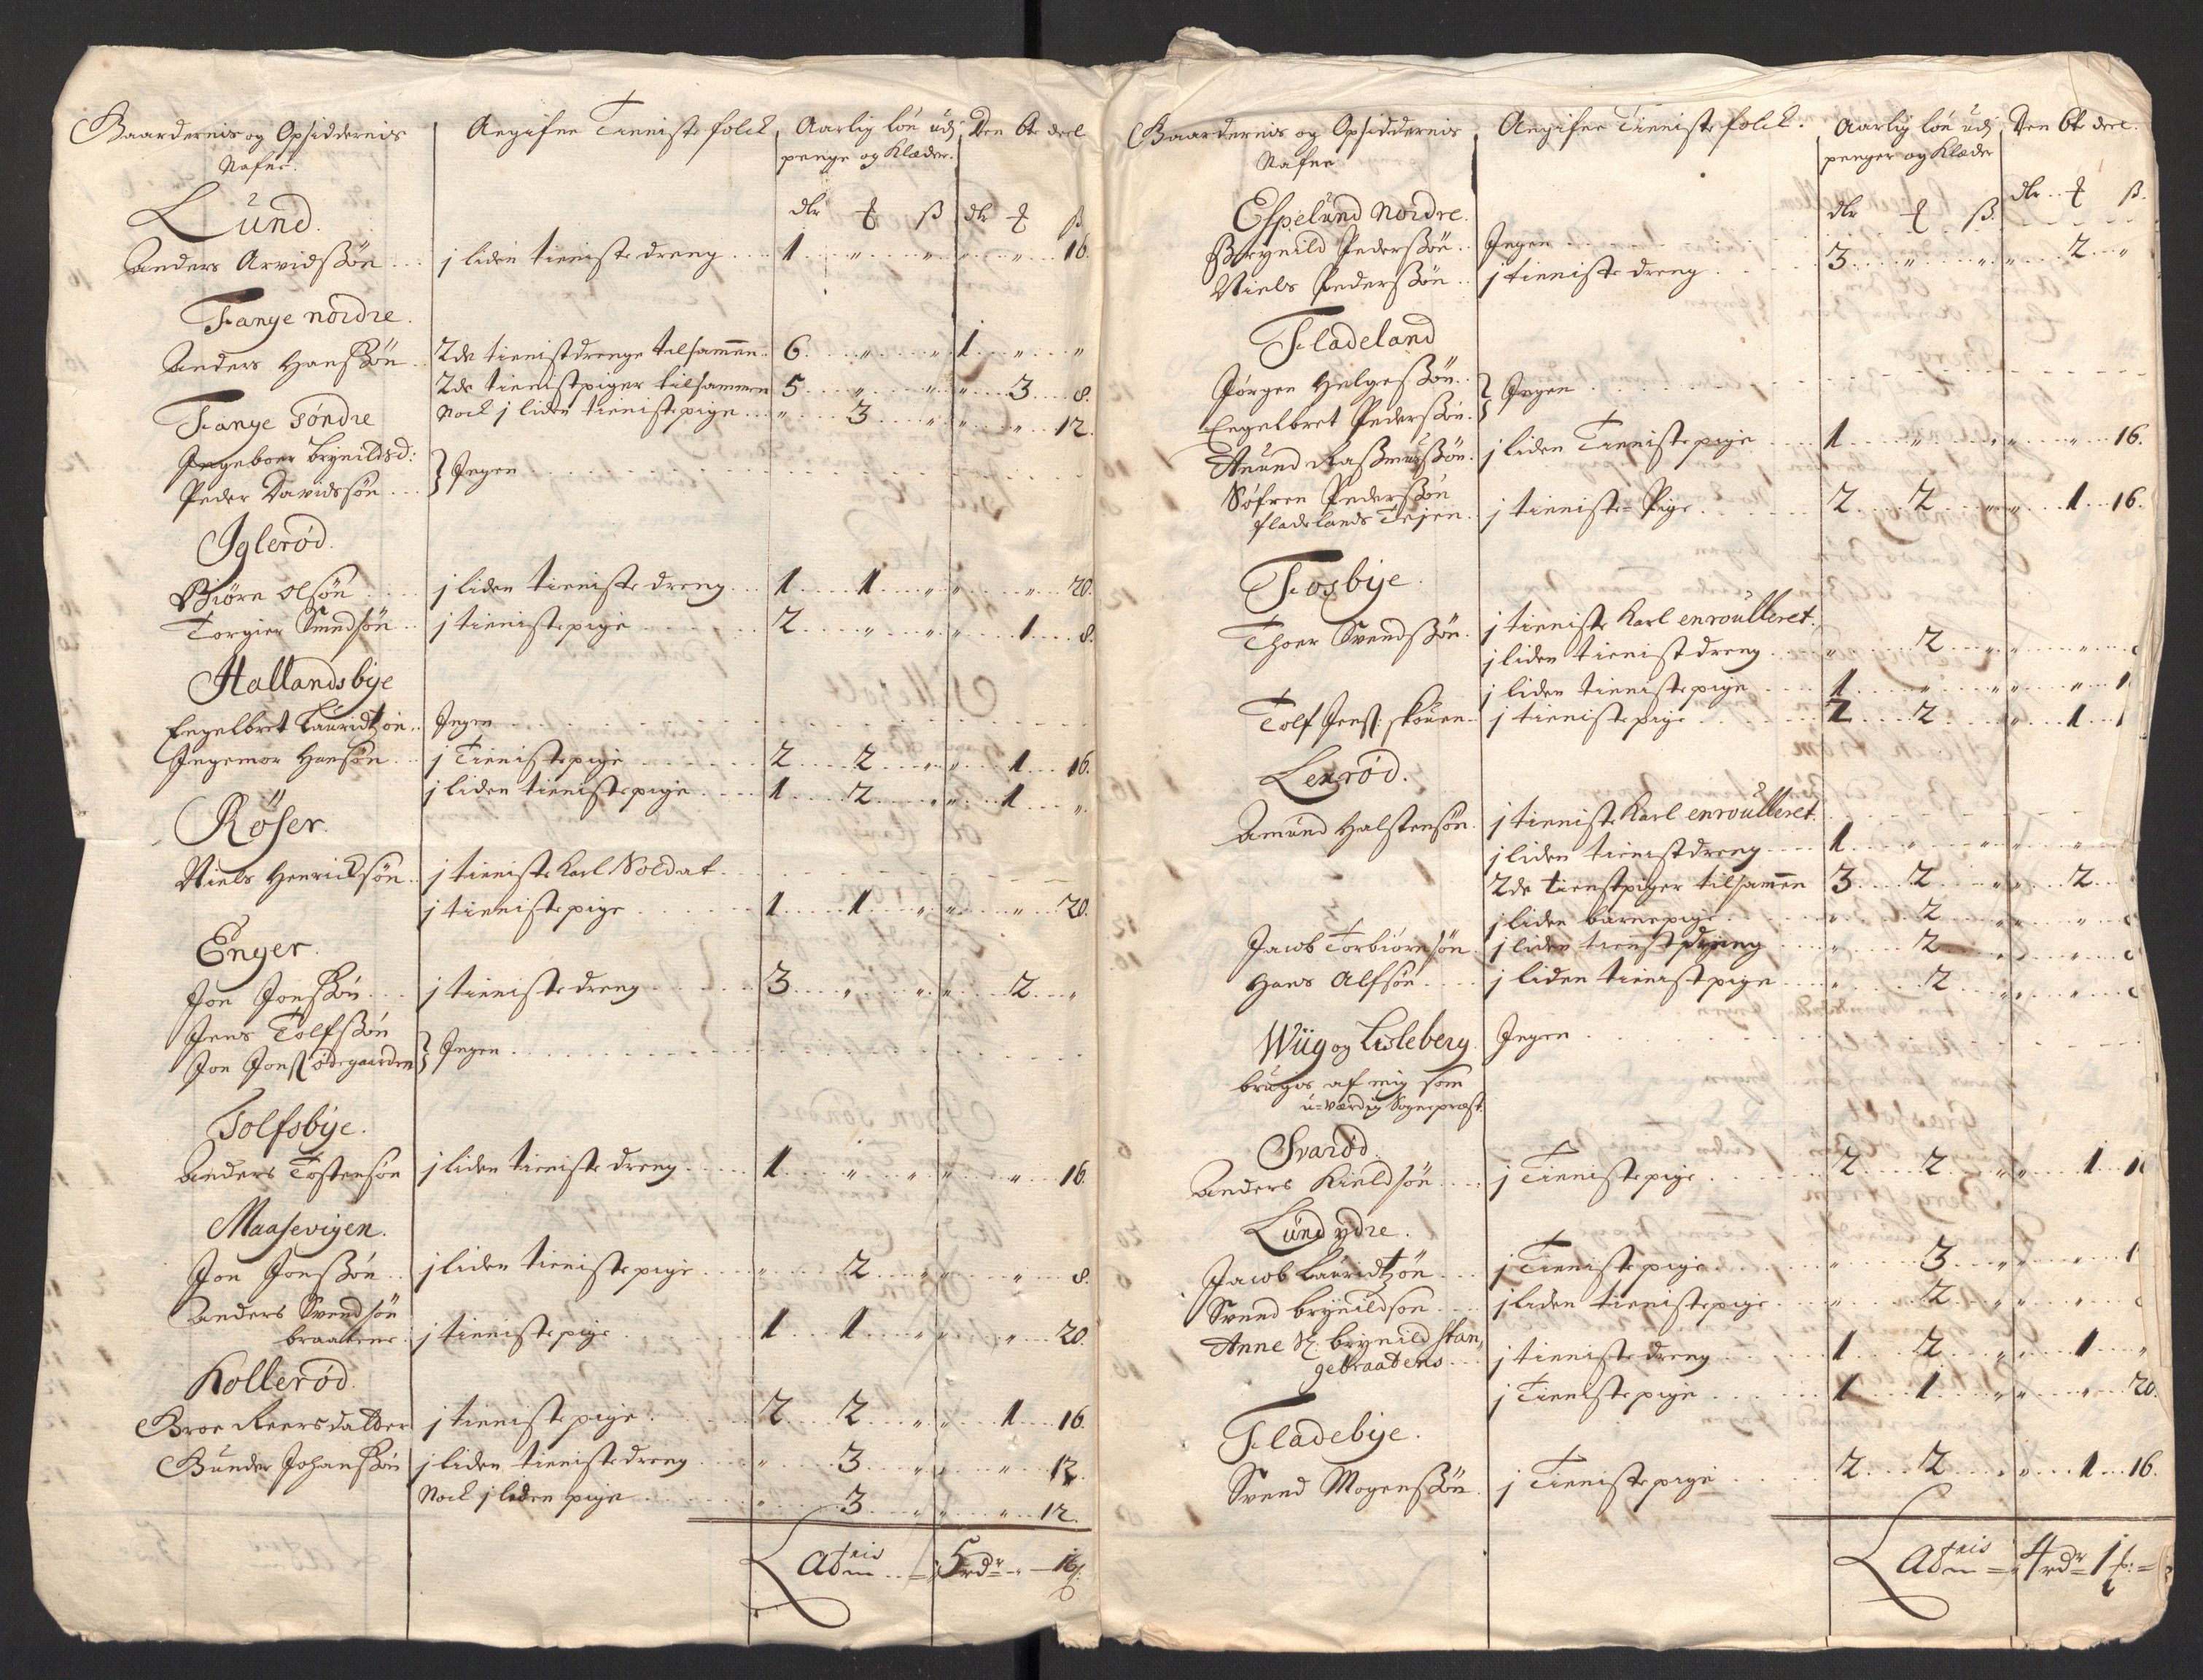 Gaardernis og Opsiddernis Nafne. Angifne Tieniste folck Aarlig lön udj penge og Klæder. Den 6te deel
dlr ß dlr ß
Lund.
Anders Arvidssön ... j liden tieniste dreng ... 1 " " " " 16.
Tange nordre.
Anders Hanssön. 2de tienistdrenge tilsammen. 6. " " 1. " "
2de tienistpiger tilsammen 5 " " " 3 8.
Tange söndre Nock j liden tienistepige ... " 3 " " " 12.
Ingeboer brynildsd:
Peder Davidssön ... } Ingen
Iglerød.
Biörn Olsön j liden tieniste dreng ... 1 1 " " " 20.
Torgier Smedsön j tienistepige 2 " " " 1 8.
Hallandsbye
Engelbret Lauridtzön. Ingen
Ingemor Hansön j Tienistepige 2 2 " " 1 16.
j liden tienistepige 1 2 " " 1 "
Röser.
Niels Henricksön. j tieniste Karl Soldat.
j tienistepige 1 1 " " " 20.
Enger.
Jon Jonssön j tieniste dreng 3 " " " 2 "
Jens Tolfssön
Jon Jonss ödegaarden } Ingen
Tolfsbye.
Anders Tostensön j liden tieniste dreng 1 " " " " 16.
Maasevigen.
Jon Jonssön j liden tienistepige " 2 " " " 8.
Anders Svendsön
braatene. j tienistepige 1 1 " " " 20.
Kollerød
Broe Reersdatter j tienistepige. 2 2 " " 1 16.
Gunder Johanssön j liden tienistedreng " 3 " " " 12.
Nock j liden pige " 3 " " " 12.
Lateris 5 rdr " 16
Gaardernis og Opsiddernis Nafne Angifne Tieniste folck. Aarlig lön udj penger og Klæder Den 6te deel.
dlr ß. dlr ß.
Espelund Nordre.
Brynild Pederssön. Ingen
Niels Pederssön j tieniste dreng 3 " " " 2 "
Fladeland
Jörgen Helgessön.
Engelbret Pederssön. } Ingen
Anund Rasmussön. j liden Tienistepige 1 " " " " 16.
Söfren Pederssön
fladelands Tejen. j tieniste Pige 2 2 " " 1 16.
Fosbye.
Thoer Svendssön. j tieniste Karl enroulleret.
j liden tienist dreng " 2 " " "
j liden tienistepige 1 " " " "
Tolf Jenss skouen. j tienistepige 2 2 " " 1
Lerrød.
Amund Halstensön. j tieniste Karl enroulleret.
j liden tienistdreng 1 " " " "
2de tienstpiger tilsammen 3 2 " " 2
j liden barnepige " 2 " " "
Jacob Torbiörnsön j liden tienstdreng " 2 " " "
Hans Alfsön j liden tienistpige " 2 " " "
Wiig og Lisleberg. Ingen
bruges af mig som
u-værdig Sognepræst.
Svarød
Anders Kieldsön j Tienistepige 2 2 " " 1
Lund ydre.
Jacob Lauridtzön j Tienistepige " 3 " " "
Svend brynildsön j liden tienistepige " 2 " " "
Anne Sl. brynild stan,
gebraatens j tieniste dreng 1 2 " " 1 "
j Tienistepige 1 1 " " " 20.
Fladebye.
Svend Mogenssön. j Tienistepige 2 2 " " 1 16.
Lateris 4 rdr 1